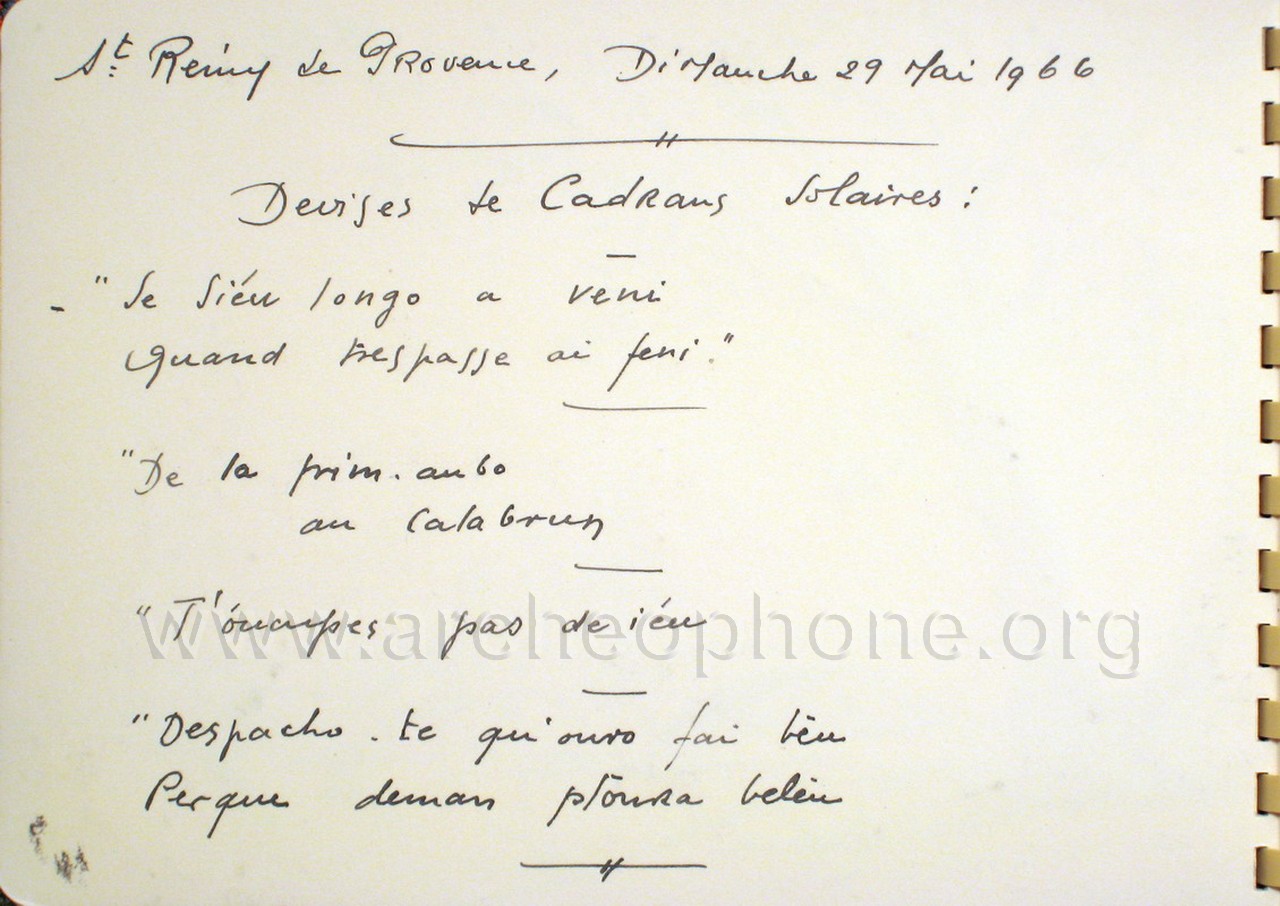 St: Rémy de PRovence, Dimanche 29 Mai 1966
Devises de CadRans Solaires :
- "Se siéu longo a veni
Quand trespasse ai feni."
"De la prim-aubo
au Calabrun
"T'óucupes pas de iéu
"Despacho-te qu'ouro fai bèu
Perque deman plóura belèu
www.archeophone.org